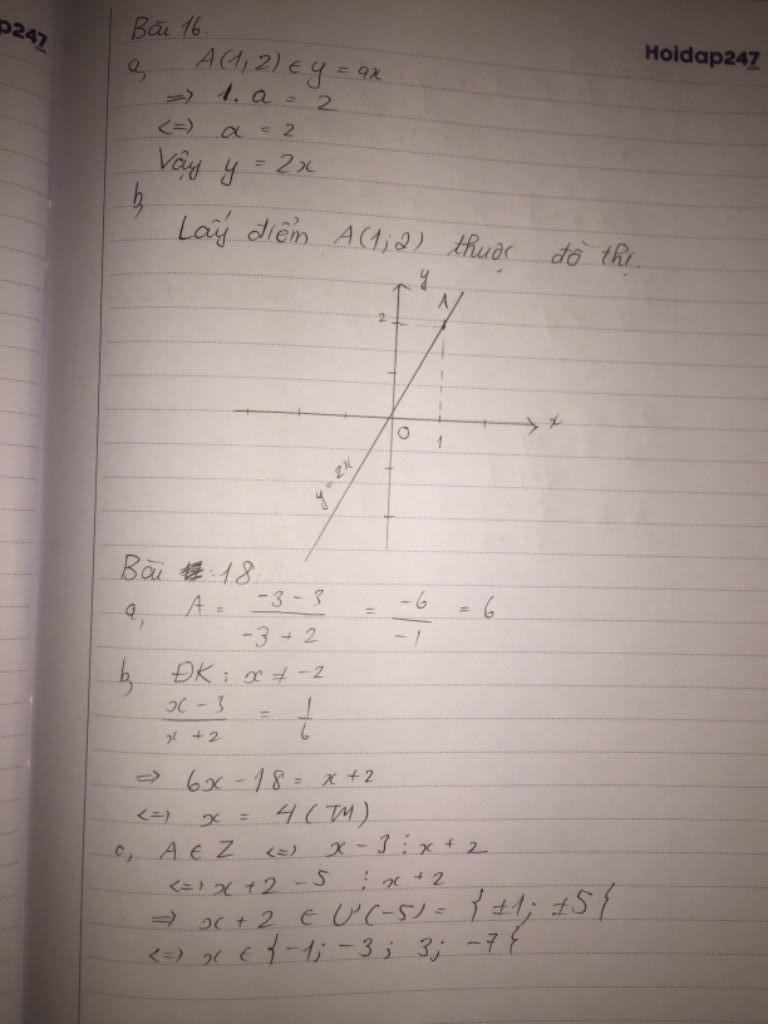 p247
Hoidap247
Bài 16.
a, A(1,2) ∈ y = ax
=> 1. a = 2
<=> a = 2
Vậy y = 2x
b,
Lấy điểm A(1;2) thuộc đồ thị.
y
A
2
x
O
1
y = 2x
Bài 18.
a, A = \frac{-3-3}{-3+2} = \frac{-6}{-1} = 6
b, ĐK : x ≠ -2
\frac{x-3}{x+2} = \frac{1}{6}
=> 6x - 18 = x + 2
<=> x = 4 (TM)
c, A ∈ Z <=> x - 3 ⋮ x + 2
<=> x + 2 - 5 ⋮ x + 2
=> x + 2 ∈ Ư(-5) = { ±1; ±5 {
<=> x ∈ { -1; -3; 3; -7 {